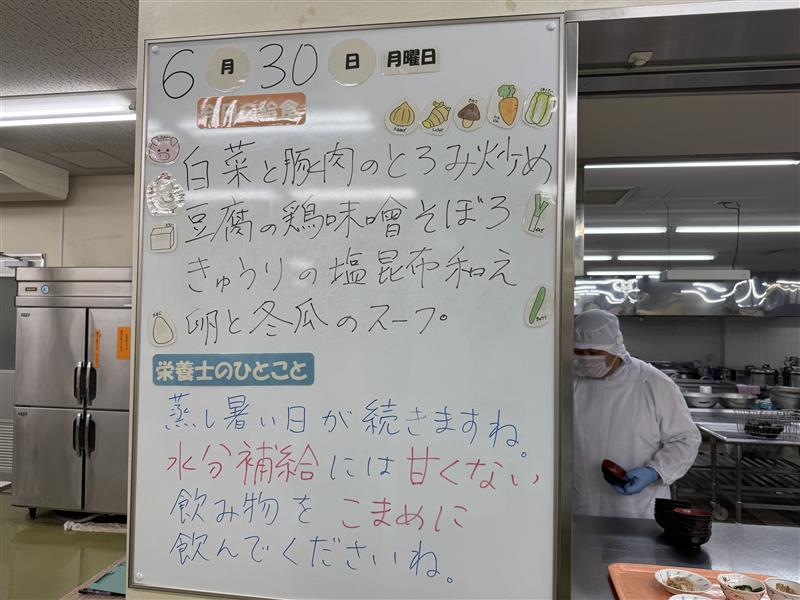 6月30日 月曜日
の給食
白菜と豚肉のとろみ炒め
豆腐の鶏味噌そぼろ
きゅうりの塩昆布和え
卵と冬瓜のスープ
栄養士のひとこと
蒸し暑い日が続きますね。
水分補給には甘くない
飲み物をこまめに
飲んでくださいね。